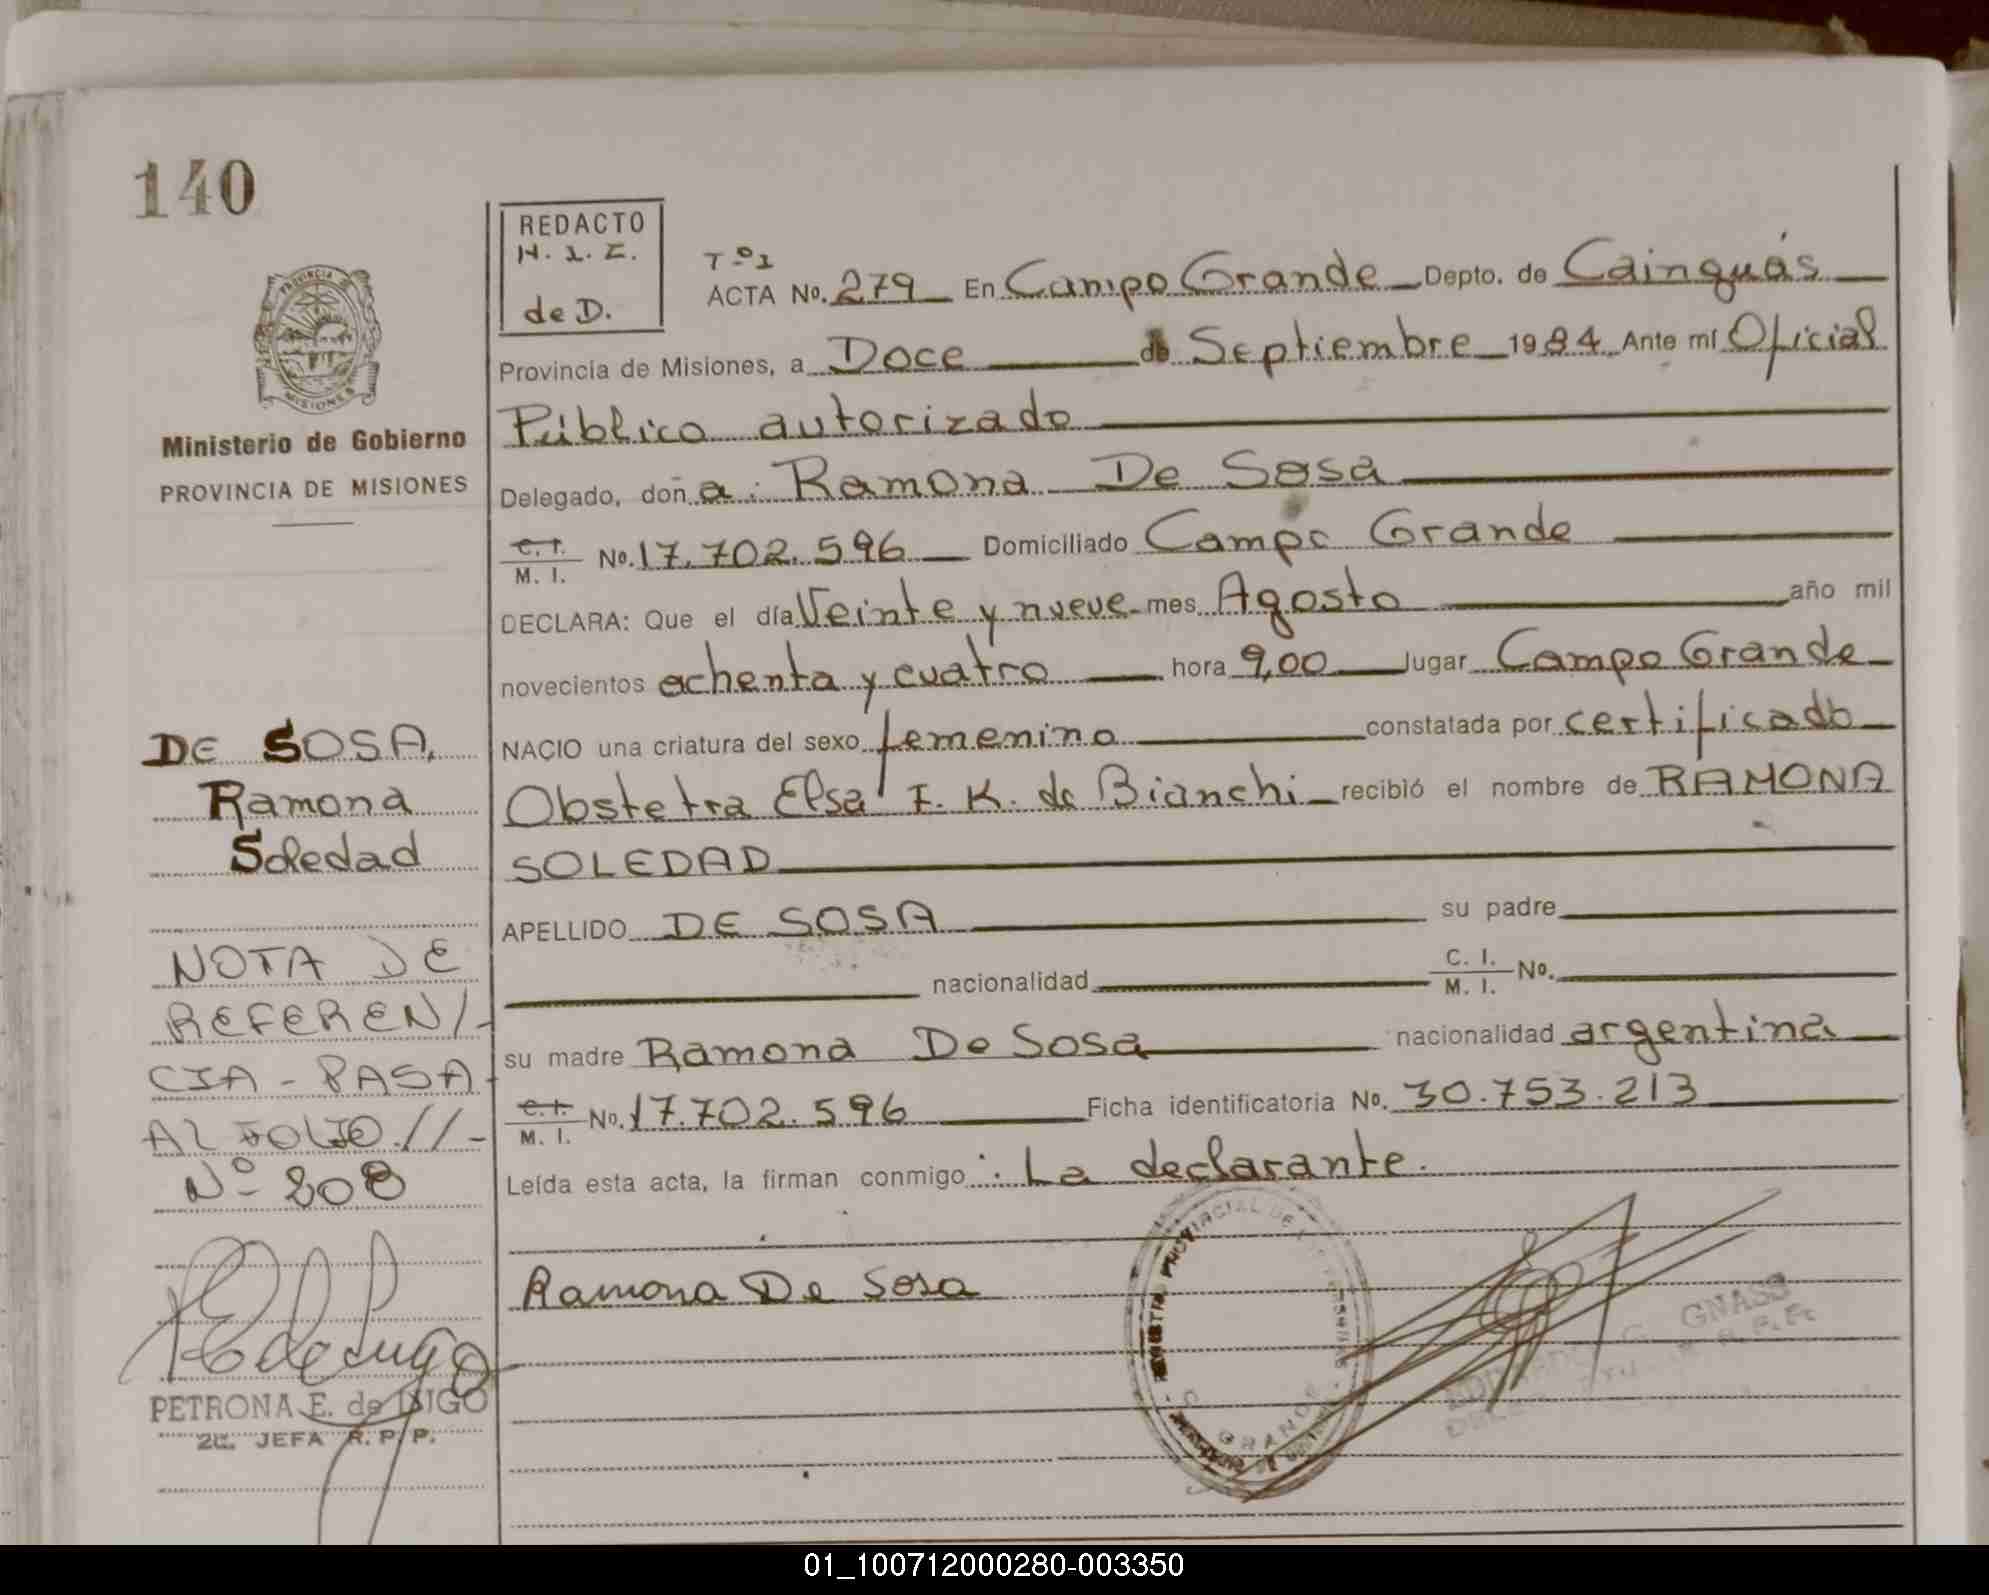 140
REDACTO
N. I. E.
de D.
PROVINCIA
MISIONES
Ministerio de Gobierno
PROVINCIA DE MISIONES
Tº 1
ACTA No. 279 En Campo Grande Depto. de Cainguás
Provincia de Misiones, a Doce de Septiembre 1984 Ante mí Oficial
Público autorizado
Delegado, doña: Ramona De Sosa
C. I. / M. I. No. 17.702.596 Domiciliado Campo Grande
DECLARA: Que el día Veinte y nueve mes Agosto año mil
novecientos ochenta y cuatro hora 9,00 lugar Campo Grande
NACIO una criatura del sexo femenino constatada por certificado
Obstetra Elsa I. K. de Bianchi recibió el nombre de RAMONA
SOLEDAD
APELLIDO DE SOSA su padre
nacionalidad C. I. / M. I. No.
su madre Ramona De Sosa nacionalidad argentina
C. I. / M. I. No. 17.702.596 Ficha identificatoria No. 30.753.213
Leída esta acta, la firman conmigo: La declarante.
Ramona De Sosa
DE SOSA,
Ramona
Soledad
NOTA DE
REFEREN/-
CIA - PASA
AL FOLIO //-
Nº 208
PETRONA E. de
JEFA R. P. P.
PROVINCIAL DE
GRANDE
GNASS
01_100712000280-003350